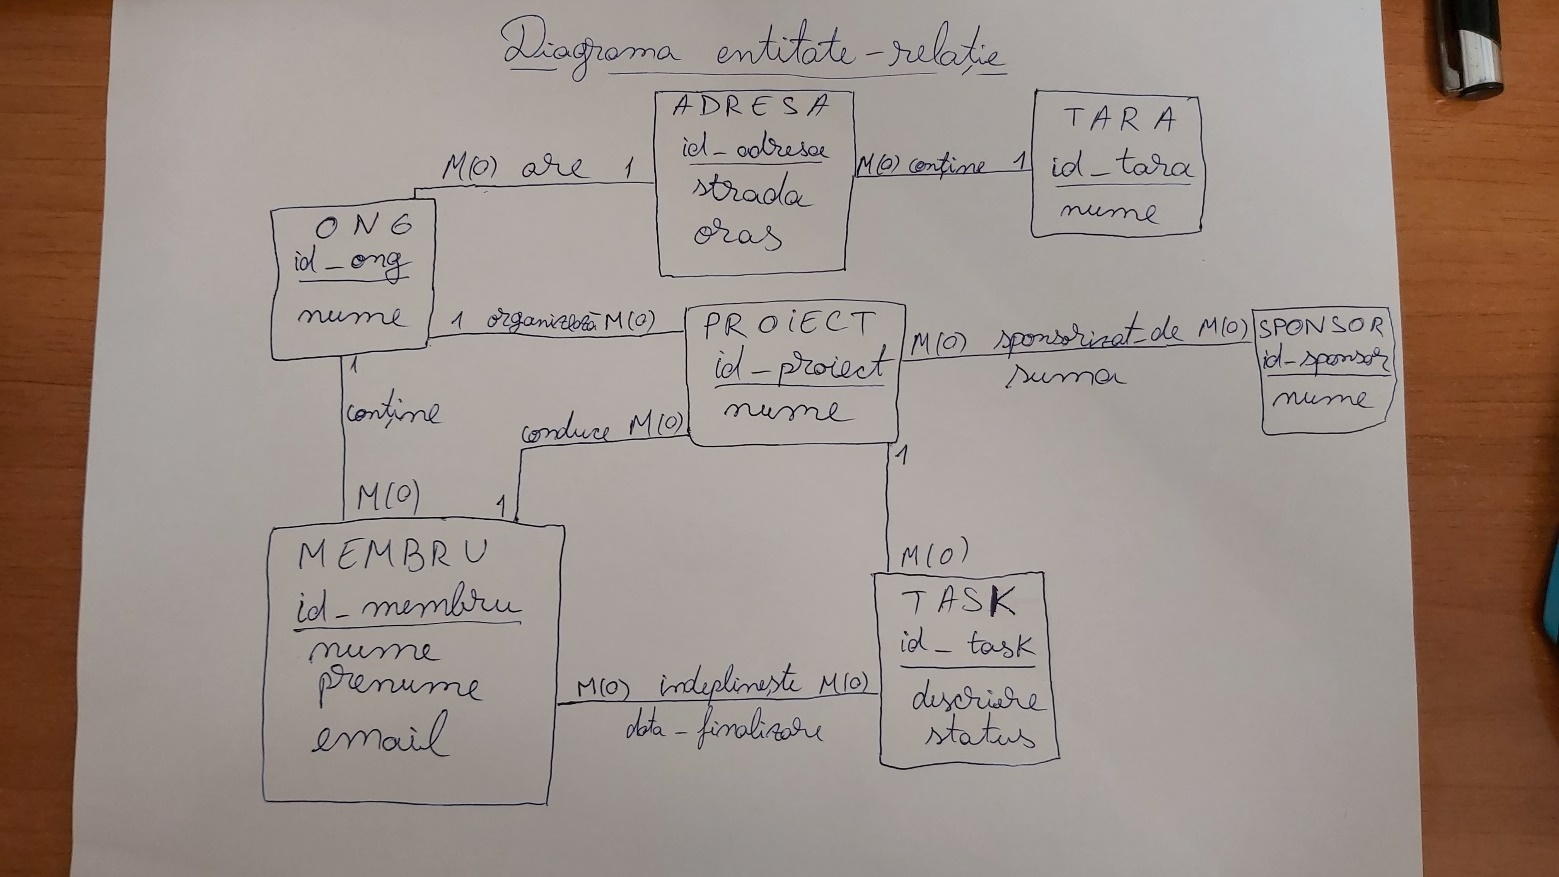 Diagrama entitate-relație
ADRESA
id_adresa
strada
oras
M(0) are 1
M(0) conține 1
TARA
id_tara
nume
ONG
id_ong
nume
1 organizează M(0)
PROIECT
id_proiect
nume
M(0) sponsorizat_de M(0)
suma
SPONSOR
id_sponsor
nume
1
conține
M(0)
conduce M(0)
1
1
M(0)
MEMBRU
id_membru
nume
prenume
email
M(0) indeplineste M(0)
data_finalizare
TASK
id_task
descriere
status